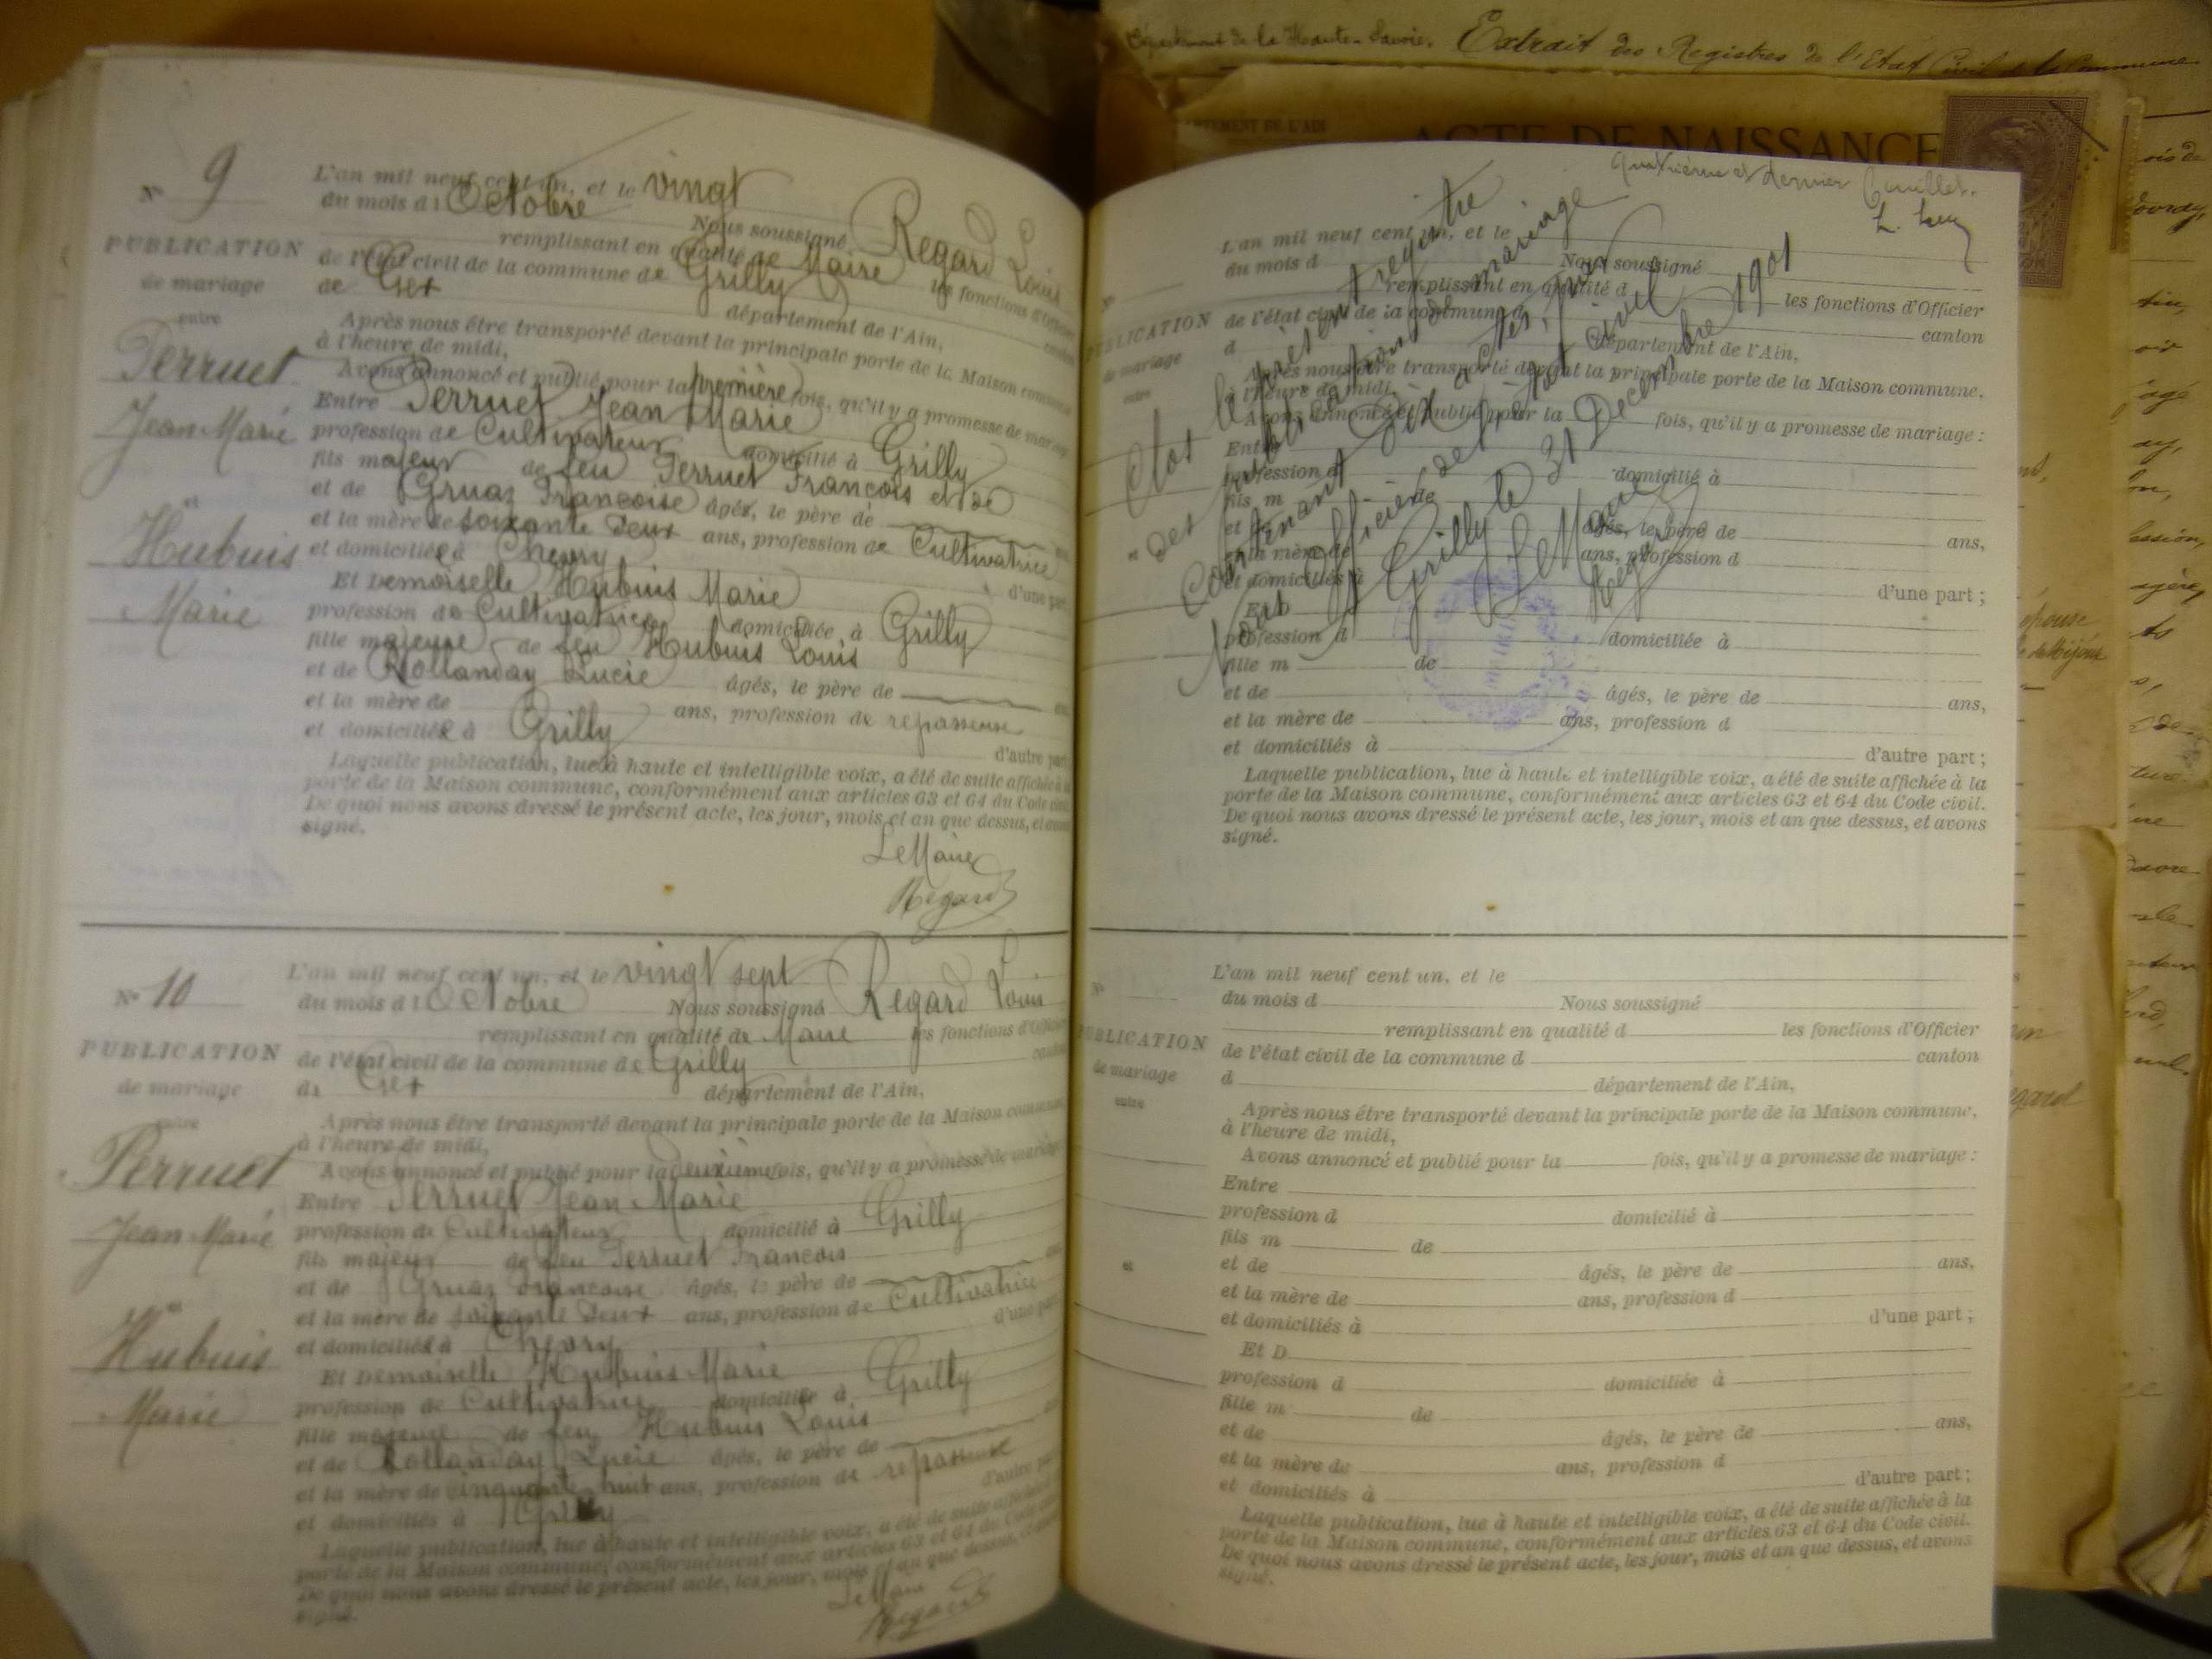 Département de la Haute-Savoie. Extrait des Registres de l'Etat Civil de la Commune
ARTEMENT DE L'AIN
ACTE DE NAISSANCE
N° 9
PUBLICATION
de mariage
entre
Perruet
Jean Marie
et
Hubuis
Marie
L'an mil neuf cent un, et le vingt
du mois d'Octobre Nous soussigné Regard Louis
remplissant en qualité de Maire les fonctions d'Officier
de l'état civil de la commune de Grilly canton
de Gex département de l'Ain,
Après nous être transporté devant la principale porte de la Maison commune
à l'heure de midi,
Avons annoncé et publié pour la première fois, qu'il y a promesse de mariage
Entre Perruet Jean Marie
profession de Cultivateur domicilié à Grilly
fils majeur de feu Perruet François et de
et de Gruaz Françoise âgés, le père de
et la mère de soixante deux ans, profession de Cultivatrice
et domiciliée à Chevry d'une part
Et Demoiselle Hubuis Marie
profession de Cultivatrice domiciliée à Grilly
fille majeure de feu Hubuis Louis
et de Rollanday Lucie âgés, le père de
et la mère de ans, profession de repasseuse
et domiciliée à Grilly d'autre part
Laquelle publication, lue à haute et intelligible voix, a été de suite affichée à la
porte de la Maison commune, conformément aux articles 63 et 64 du Code civil.
De quoi nous avons dressé le présent acte, les jour, mois et an que dessus, et avons
signé.
Le Maire
Regard
N° 10
PUBLICATION
de mariage
entre
Perruet
Jean Marie
et
Hubuis
Marie
L'an mil neuf cent un, et le vingt sept
du mois d'Octobre Nous soussigné Regard Louis
remplissant en qualité de Maire les fonctions d'Officier
de l'état civil de la commune de Grilly canton
de Gex département de l'Ain,
Après nous être transporté devant la principale porte de la Maison commune
à l'heure de midi,
Avons annoncé et publié pour la deuxième fois, qu'il y a promesse de mariage
Entre Perruet Jean Marie
profession de Cultivateur domicilié à Grilly
fils majeur de feu Perruet François
et de Gruaz Françoise âgés, le père de ans
et la mère de soixante deux ans, profession de Cultivatrice
et domiciliés à Chevry d'une part
Et Demoiselle Hubuis Marie
profession de Cultivatrice domiciliée à Grilly
fille majeure de feu Hubuis Louis
et de Rollanday Lucie âgés, le père de
et la mère de cinquante huit ans, profession de repasseuse
et domiciliés à Grilly d'autre part
Laquelle publication, lue à haute et intelligible voix, a été de suite affichée
porte de la Maison commune, conformément aux articles 63 et 64 du Code
De quoi nous avons dressé le présent acte, les jour, mois et an que dessus,
signé.
Le Maire
Regard
Quatrième et dernier feuillet.
Clos le présent registre
des publications de mariage
contenant Dix actes, par
Nous Officier de l'état civil
A Grilly le 31 Decembre 1901
Le Maire
Regard
N°
PUBLICATION
de mariage
entre
L'an mil neuf cent un, et le
du mois d Nous soussigné
remplissant en qualité d les fonctions d'Officier
de l'état civil de la commune d canton
d département de l'Ain,
Après nous être transporté devant la principale porte de la Maison commune.
à l'heure de midi,
Avons annoncé et publié pour la fois, qu'il y a promesse de mariage :
Entre
profession d domicilié à
fils m de
et de âgés, le père de ans,
et la mère de ans, profession d
et domiciliés à d'une part ;
Et D
profession d domiciliée à
fille m de
et de âgés, le père de ans,
et la mère de ans, profession d
et domiciliés à d'autre part ;
Laquelle publication, lue à haute et intelligible voix, a été de suite affichée à la
porte de la Maison commune, conformément aux articles 63 et 64 du Code civil.
De quoi nous avons dressé le présent acte, les jour, mois et an que dessus, et avons
signé.
N°
PUBLICATION
de mariage
entre
et
L'an mil neuf cent un, et le
du mois d Nous soussigné
remplissant en qualité d les fonctions d'Officier
de l'état civil de la commune d canton
d département de l'Ain,
Après nous être transporté devant la principale porte de la Maison commune,
à l'heure de midi,
Avons annoncé et publié pour la fois, qu'il y a promesse de mariage :
Entre
profession d domicilié à
fils m de
et de âgés, le père de ans,
et la mère de ans, profession d
et domiciliés à d'une part ;
Et D
profession d domiciliée à
fille m de
et de âgés, le père de ans,
et la mère de ans, profession d
et domiciliés à d'autre part ;
Laquelle publication, lue à haute et intelligible voix, a été de suite affichée à la
porte de la Maison commune, conformément aux articles 63 et 64 du Code civil.
De quoi nous avons dressé le présent acte, les jour, mois et an que dessus, et avons
signé.